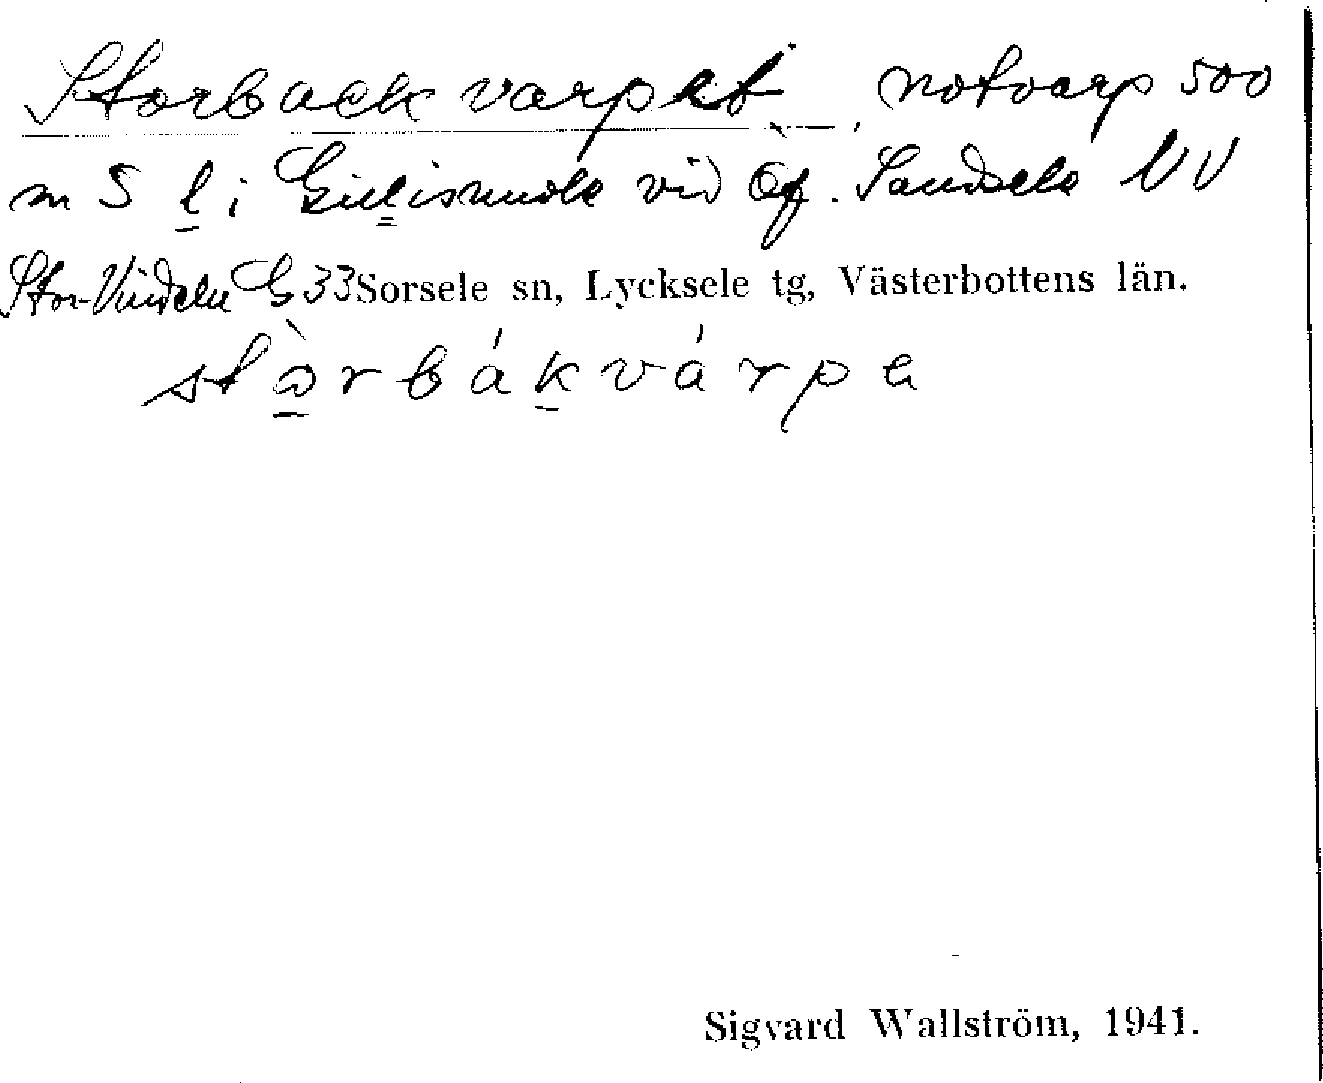 Storbackvarpet, notvarp 500
m S l i Gillisnuole vid Öf. Sandsele NV
Stor-Vindeln G 33 Sorsele sn, Lycksele tg, Västerbottens län.
stòrbákvárpe
Sigvard Wallström, 1941.